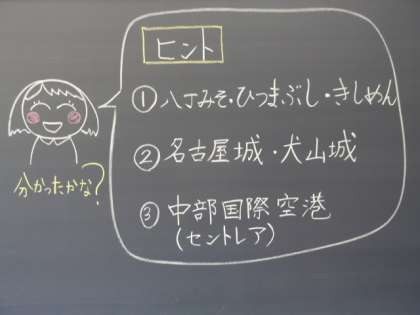 ヒント
① 八丁みそ・ひつまぶし・きしめん
② 名古屋城・犬山城
③ 中部国際空港
(セントレア)
分かったかな?